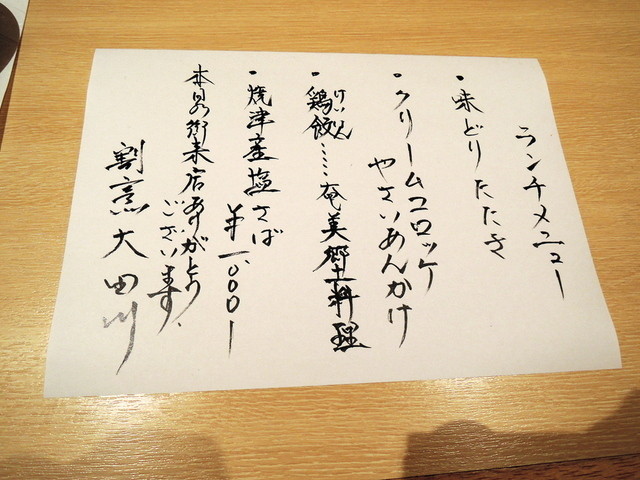 ランチメニュー
・味どりたたき
・クリームコロッケ
やさいあんかけ
・鶏飯……奄美郷土料理
けいはん
・焼津産塩さば
¥一、〇〇〇ー
本日御来店ありがとう
ございます、
割烹大田川